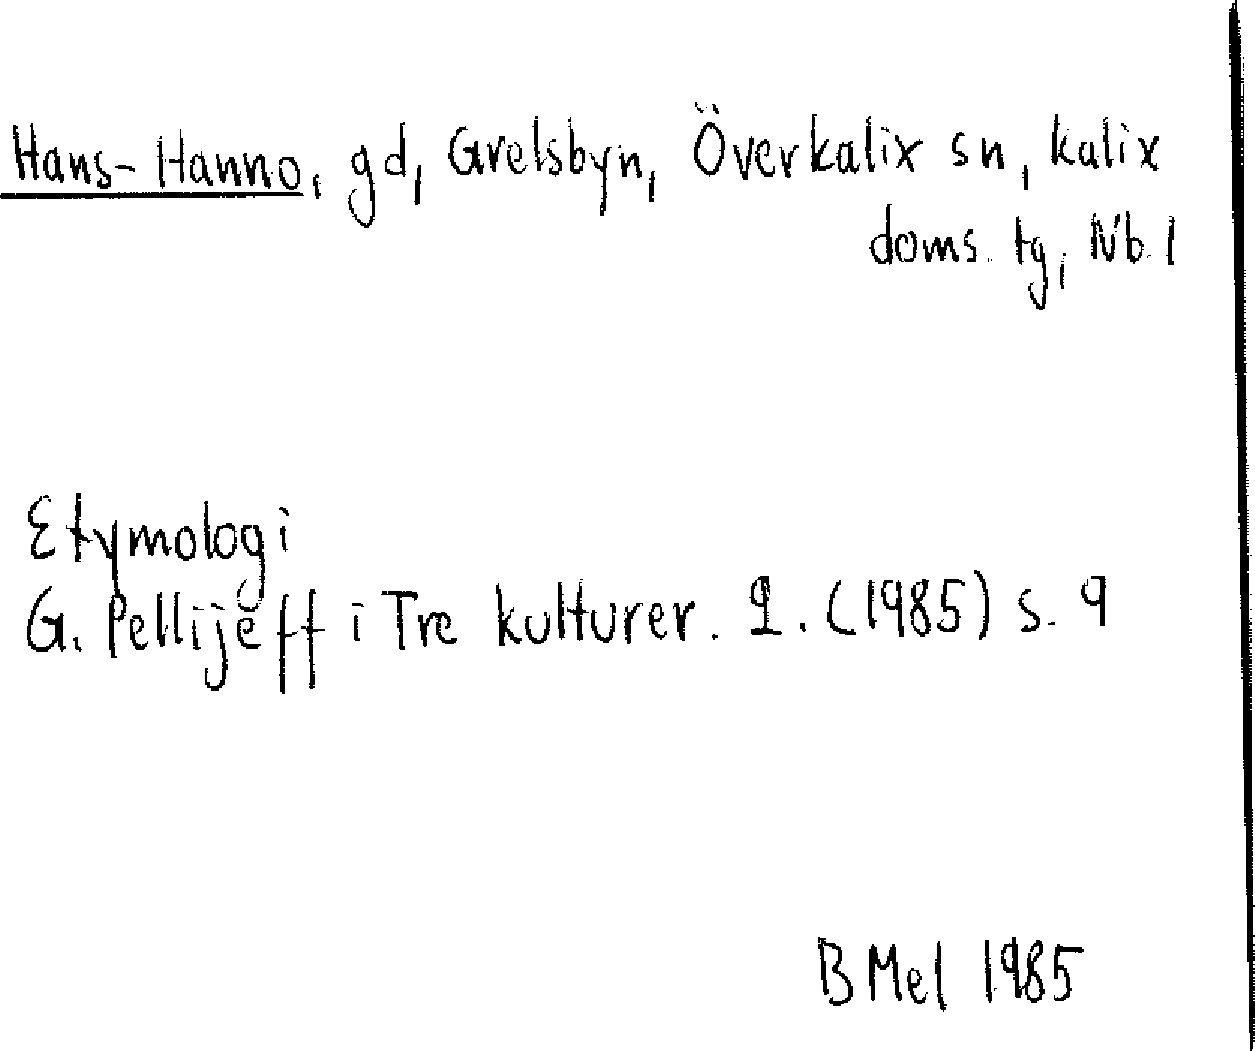 Hans-Hanno, gd, Grelsbyn, Överkalix sn, Kalix
doms. tg, Nb. l
Etymologi
G. Pellijeff i Tre kulturer. 2. (1985) s. 9
B Mel 1985